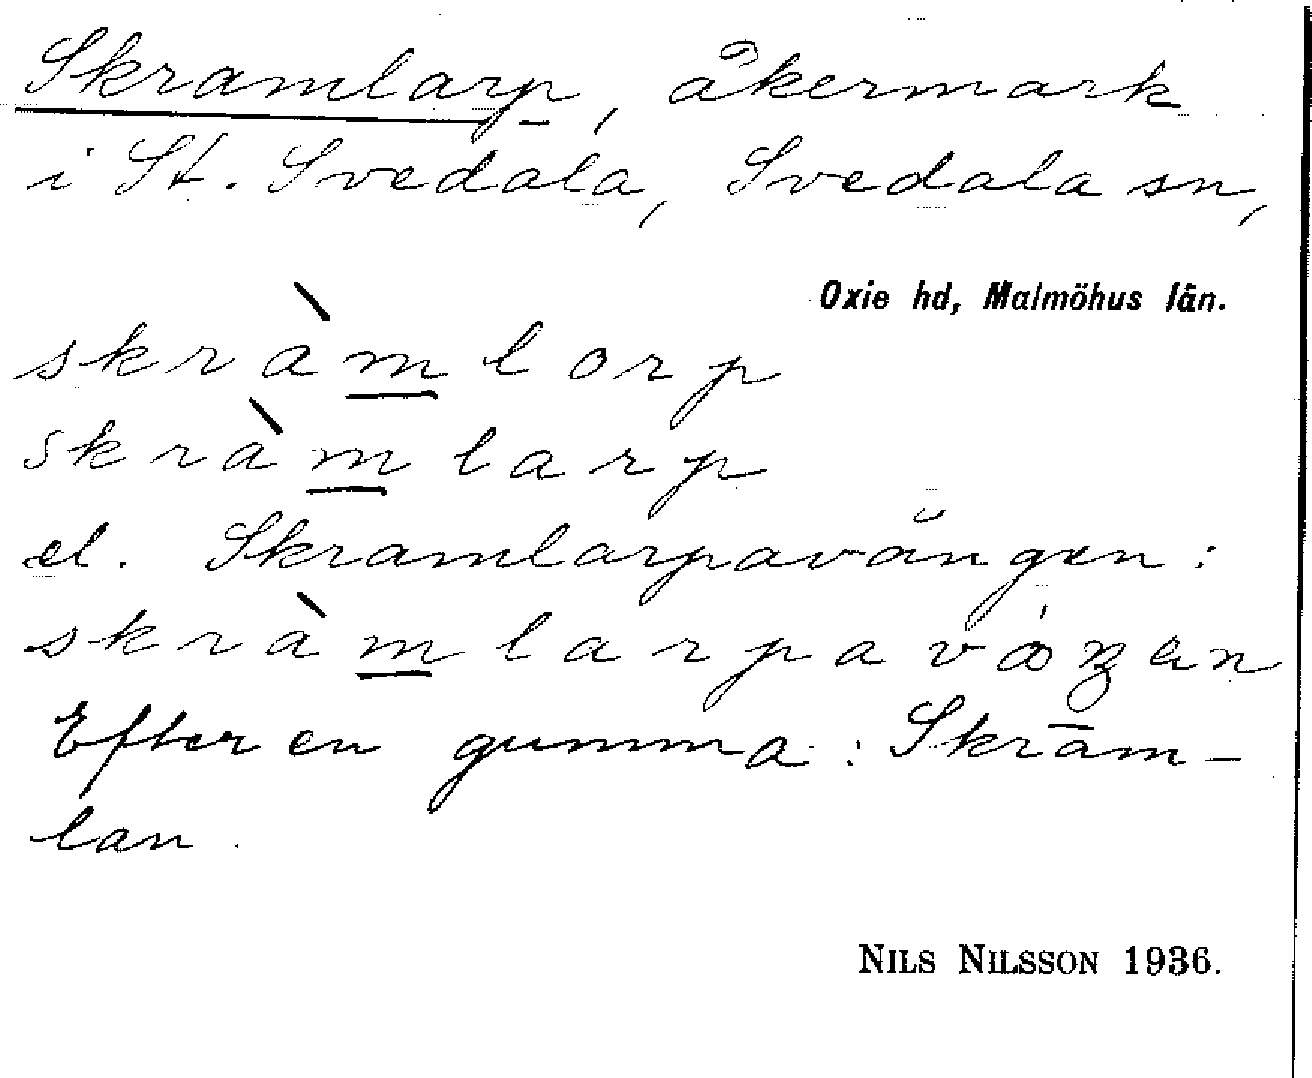 Skramlarp, åkermark
i St. Svedala, Svedala sn,
Oxie hd, Malmöhus län.
skràmlorp
skràmlarp
el. Skramlarpavången:
skràmlarpavåŋen
Efter en gumma: Skräm-
lan.
NILS NILSSON 1936.